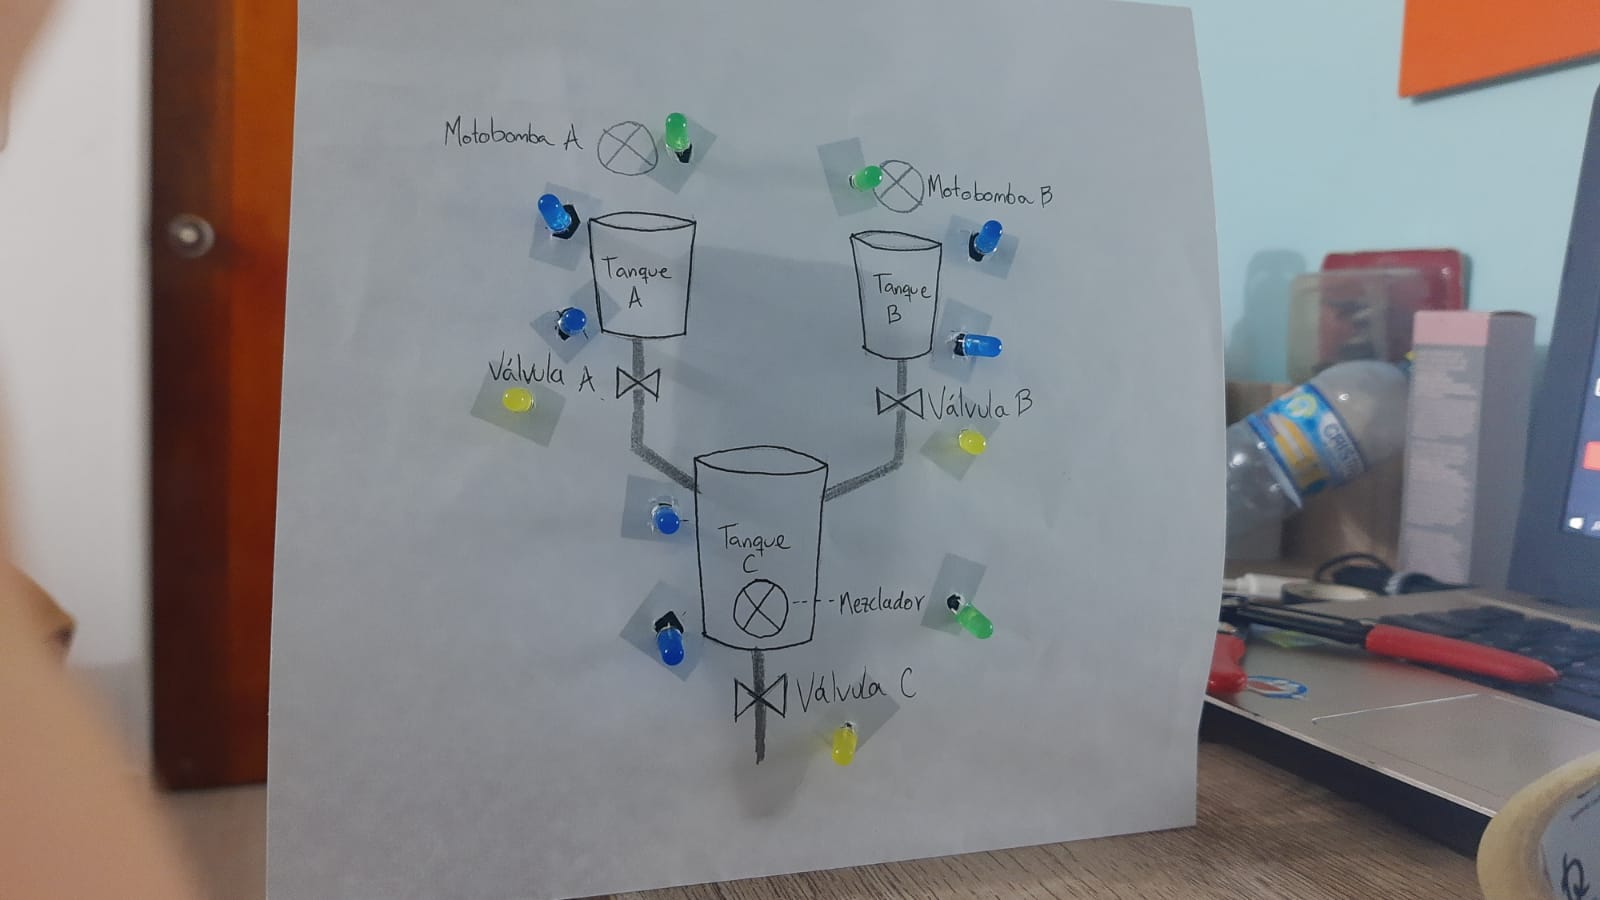 Motobomba A
Motobomba B
Tanque
A
Tanque
B
Válvula A
Válvula B
Tanque
C
Mezclador
Válvula C